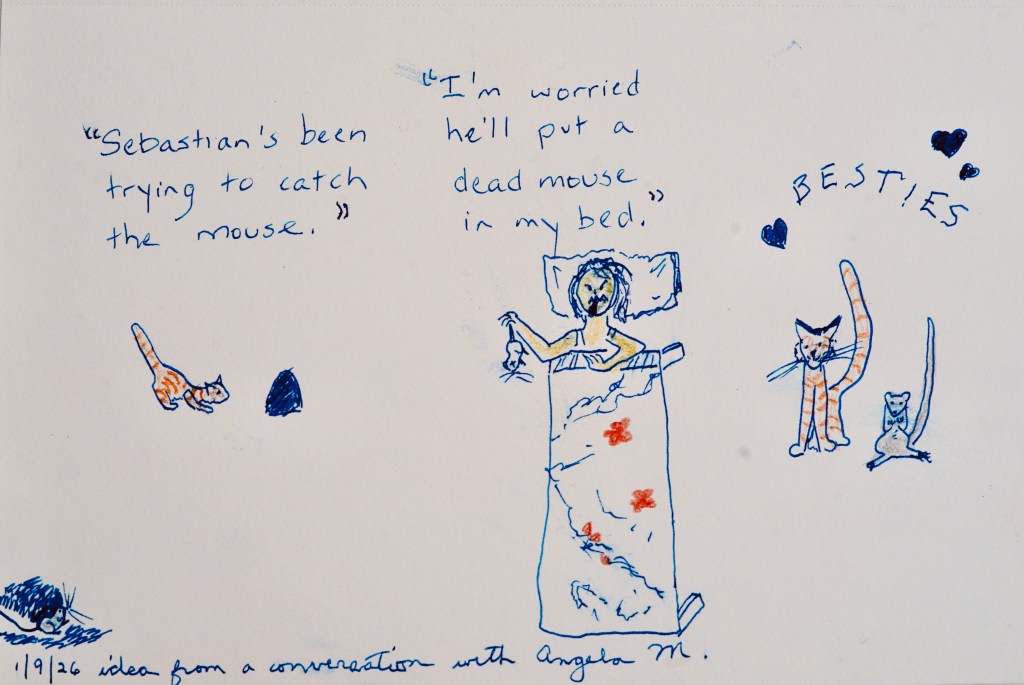 "Sebastian's been
trying to catch
the mouse."
"I'm worried
he'll put a
dead mouse
in my bed."
BESTIES
1/9/26 idea from a conversation with Angela M.